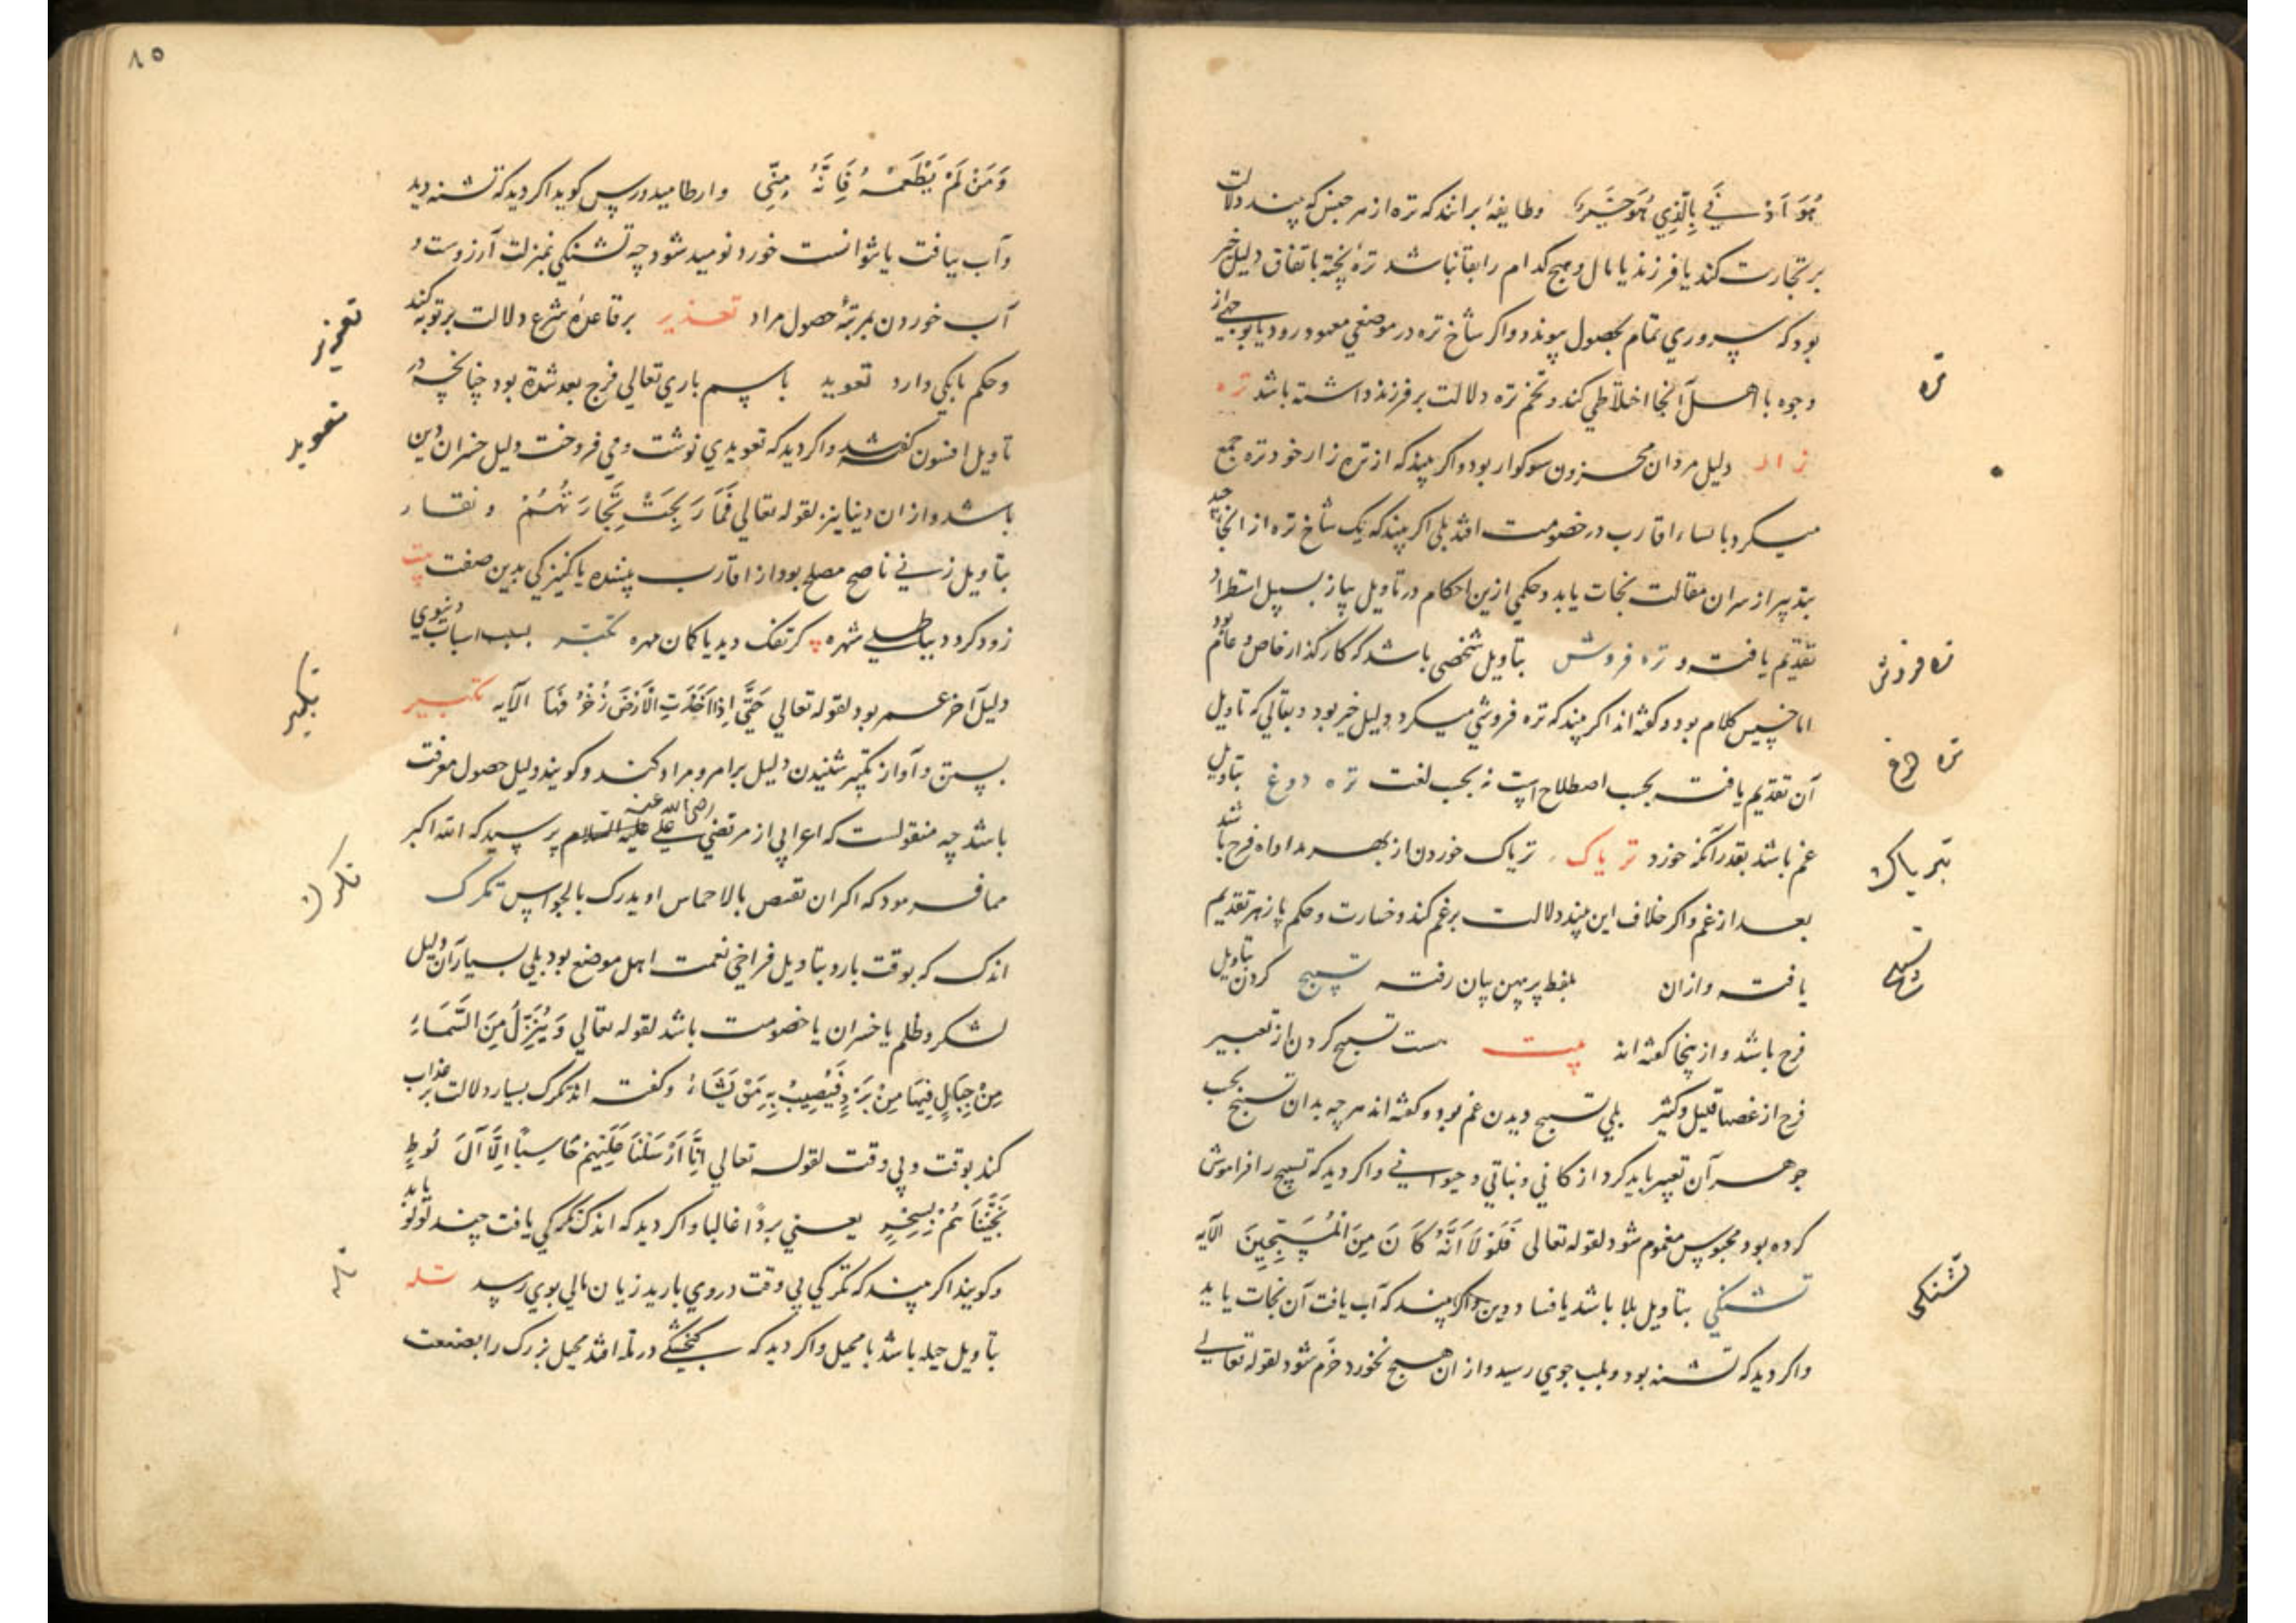 هُوَ اَدْنٰي بِالَّذِي هُوَ خَيْرٌ وطایفه برانند که تره از هر جنس که بیند دلالت
بر تجارت کند یا فرزند یا مال و هیچ کدام را بقا نباشد تره پخته باتفاق دلیل خیر
بود که پروري تمام بحصول پیوندد واکر شاخ تره در موضعي معهود رود یا بوجهي از
وجوه با اهل آنجا اختلاطي کند و تخم تره دلالت بر فرزند داشته باشد تره
تره
زار دلیل مردان محزون سوکوار بود واکر بیند که از تره زار خود تره جمع
میکرد با نساء اقارب در خصومت افتد بلی اکر بیند که یک شاخ تره از آنجا
بتدبیر از سر آن مقالت نجات یابد و حکمي ازین احکام در تاویل پیاز بسبیل استطراد
تقدیم یافت و تره فروش بتاویل شخصي باشد که کارکذار خاص و عام بود
تره فروش
اما خسیس کلام بود و کفته اند اکر بیند که تره فروشي میکرد دلیل خیر بود و بقالي که تاویل
آن تقدیم یافت بحسب اصطلاح است نه بحسب لغت تره دوغ بتاویل
تره دوغ
غم باشد بقدر آنکه خورد تریاک تریاک خوردن از بهر مداواه فرح باشد
تریاک
بعد از غم واکر خلاف این بیند دلالت بر غم کند و خسارت و حکم پازهر تقدیم
یافت و ازان بلفظ پرپهن بیان رفت تسبیح کردن بتاویل
تسبیح
فرح باشد و از ینجا کفته اند بیت هست تسبیح کردن از تعبیر
فرح از غصها قلیل و کثیر بلي تسبیح دیدن غم بود و کفته اند هر چه بدان تسبیح بحسب
جوهر آن تعبیر باید کرد از کاني و نباتي و حیواني واکر دید که تسبیح را فراموش
کرده بود محبوس مغموم شود لقوله تعالی فَلَوْلَا اَنَّهُ كَانَ مِنَ الْمُسَبِّحِينَ الآیه
تشنکي بتاویل بلا باشد یا فساد دین واکر بیند که آب یافت آن نجات یابد
تشنکی
واکر دید که تشنه بود و بلب جوي رسید و از ان هیچ نخورد خرم شود لقوله تعالي
٨٥
وَمَنْ لَمْ يَطْعَمْهُ فَاِنَّهُ مِنِّي وارطامیدورس کوید اکر دید که تشنه دید
و آب نیافت یا نتوانست خورد نومید شود چه تشنکي بمنزلت آرزوست و
آب خوردن بمرتبهٔ حصول مراد تعذیر بر قاعدهٔ شرع دلالت بر توبه کند
تعزیر
و حکم بانکي دارد تعوید باسم باري تعالي فرج بعد شدة بود چنانچه در
تعوید
تاویل افسون کفته شد واکر دید که تعویذي نوشت ومي فروخت دلیل خسران دین
باشد و از ان دنیا نیز لقوله تعالي فَمَا رَبِحَتْ تِجَارَتُهُمْ و نقار
بتاویل زني ناصح مصلح بود از اقارب بیننده یا کنیزکي بدین صفت بیت
زود کردد بباطلي شهره کر تفک دید یا کمان مهره تکبر بسبب اسباب دنیوي
دلیل آخر عمر بود لقوله تعالي حَتَّي اِذَا اَخَذَتِ الْاَرْضُ زُخْرُفَهَا الآیه تکبیر
تکبیر
بستن و آواز تکبیر شنیدن دلیل بر امر و مراد کنند و کویند دلیل حصول معرفت
باشد چه منقولست که اعرابي از مرتضي علي علیه السلام رضي الله عنه پرسید که الله اکبر
مما فرمود که اکران تقص بالاحماس او یدرک بالحواس تکرک
تکرک
اندک که بوقت بارد بتاویل فراخي نعمت اهل موضع بود بلي بسیار آن دلیل
لشکر و ظلم یا خسران یا خصومت باشد لقوله تعالي وَيُنَزِّلُ مِنَ السَّمَاءِ
مِنْ جِبَالٍ فِيهَا مِنْ بَرَدٍ فَيُصِيبُ بِهِ مَنْ يَشَاءُ وکفته اند تکرک بسیار دلالت بر عذاب
کند بوقت و بي وقت لقوله تعالي اِنَّا اَرْسَلْنَا عَلَيْهِمْ حَاصِبًا اِلَّا آلَ لُوطٍ
نَجَّيْنَاهُمْ بِسَحَرٍ یعني بردًا غالبا واکر دید که اندک تکرکي یافت چند لولو یابد
وکویند اکر بیند که تکرکي بي وقت در وي بارید زیان مالي بوي رسد تله
تله
بتاویل حیله باشد یا محیل واکر دید که کنجشکي در تله افتد محیل بزرک را بصنعت